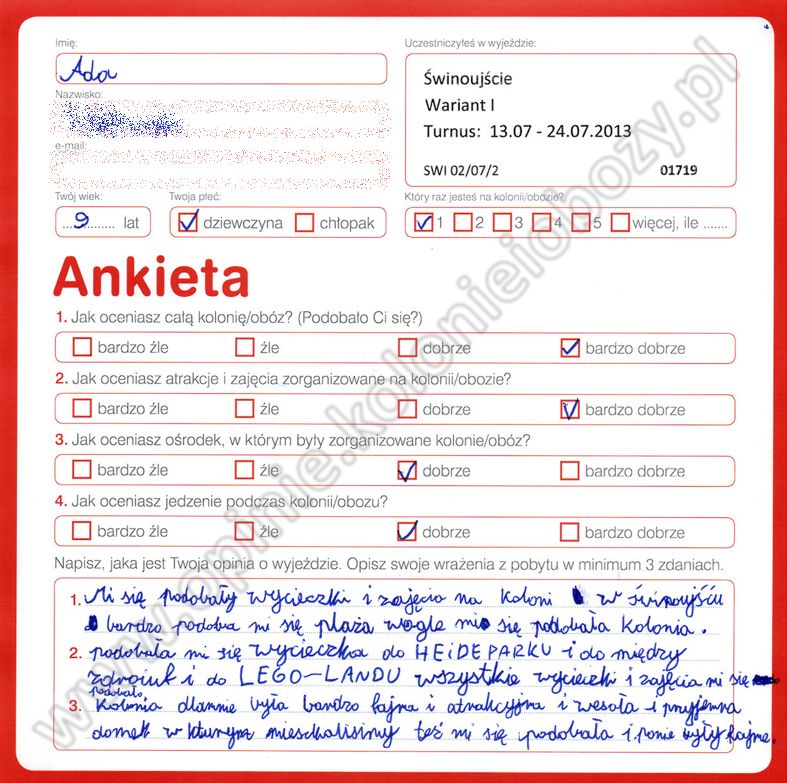 Imię:
Uczestniczyłeś w wyjeździe:
Ada
Świnoujście
Wariant I
Turnus: 13.07 - 24.07.2013
SWI 02/07/2 01719
Nazwisko:
e-mail:
Twój wiek:
Twoja płeć:
Który raz jesteś na kolonii/obozie?
9 lat
dziewczyna chłopak
1 2 3 4 5 więcej, ile .......
Ankieta
1. Jak oceniasz całą kolonię/obóz? (Podobało Ci się?)
bardzo źle źle dobrze bardzo dobrze
2. Jak oceniasz atrakcje i zajęcia zorganizowane na kolonii/obozie?
bardzo źle źle dobrze bardzo dobrze
3. Jak oceniasz ośrodek, w którym były zorganizowane kolonie/obóz?
bardzo źle źle dobrze bardzo dobrze
4. Jak oceniasz jedzenie podczas kolonii/obozu?
bardzo źle źle dobrze bardzo dobrze
Napisz, jaka jest Twoja opinia o wyjeździe. Opisz swoje wrażenia z pobytu w minimum 3 zdaniach.
1. Mi się podobały wycieczki i zajęcia na koloni w świnoujściu
bardzo podoba mi się plaża wogle mi się podobała kolonia.
2. podobała mi się wycieczka do HEIDEPARKU i do między
zdroiuk i do LEGO-LANDU wszystkie wycieczki i zajęcia mi się
podobało,
3. Kolonia dlamnie była bardzo fajna i atrakcyjna i wesoła i przyjemna
domek w kturym mieschalisimy też mi się podobała i panie były fajne.
www.opinie.kolonieiobozy.pl